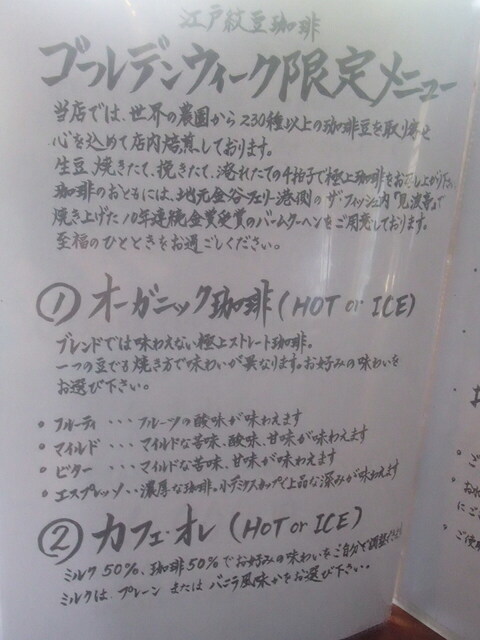 江戸紋豆珈琲
ゴールデンウィーク限定メニュー
当店では、世界の農園から230種以上の珈琲豆を取り寄せ
心を込めて店内焙煎しております。
生豆、焼きたて、挽きたて、淹れたての4拍子で極上珈琲をお召し上がり下さい
珈琲のおともには、地元金谷フェリー港側のザ・フィッシュ内「見波亭」で
焼き上げた10年連続金賞受賞のバームクーヘンをご用意しております。
至福のひとときをお過ごしください。
① オーガニック珈琲 (HOT or ICE)
ブレンドでは味わえない極上ストレート珈琲。
一つの豆でも焼き方で味わいが異なります。お好みの味わいを
お選び下さい。
• フルーティ ・・・ フルーツの酸味が味わえます
• マイルド ・・・ マイルドな苦味、酸味、甘味が味わえます
• ビター ・・・ マイルドな苦味、甘味が味わえます
• エスプレッソ・・濃厚な珈琲。小デミタスカップで上品な深みが味わえます
② カフェ・オレ (HOT or ICE)
ミルク50%、珈琲50%でお好みの味わいをご自分で調整ください
ミルクは、プレーン または バニラ風味かをお選び下さい。